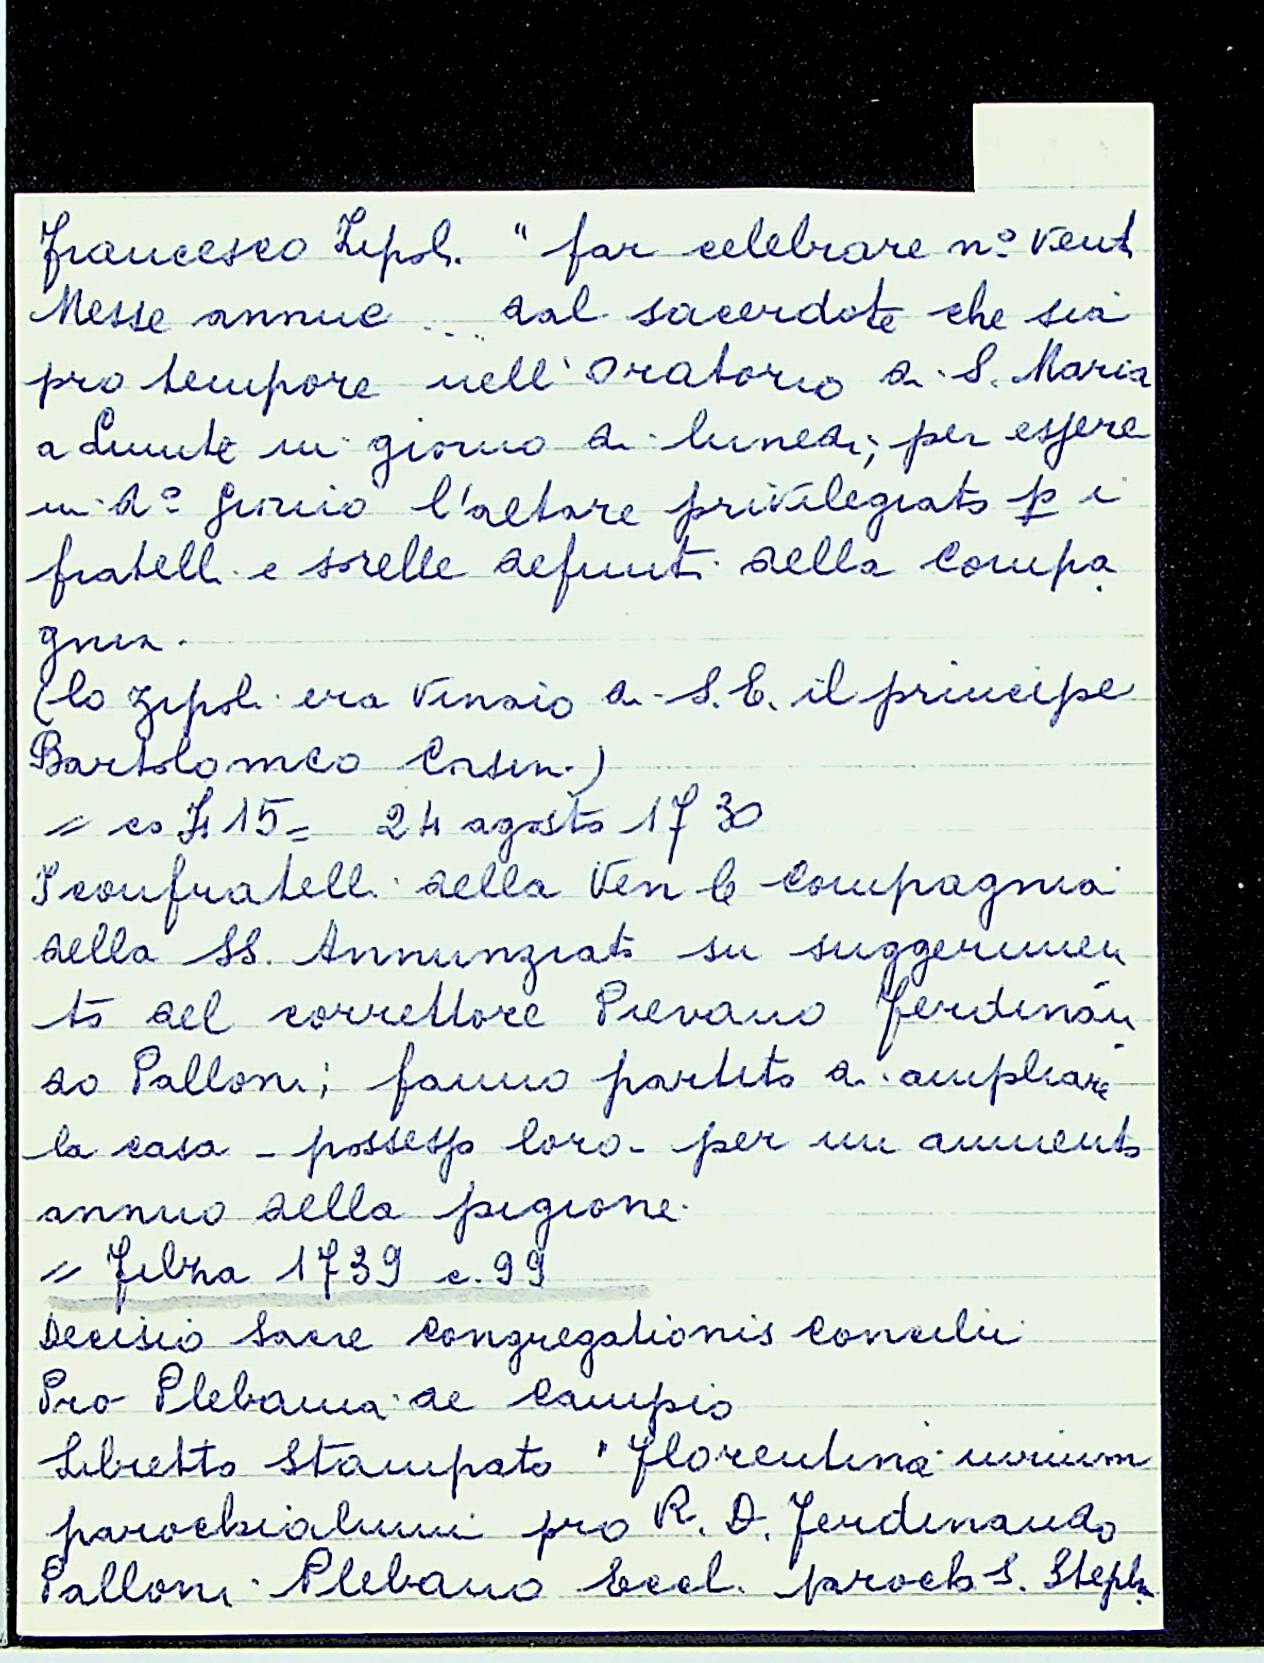 Francesco Zipoli. " far celebrare n.º venti
Messe annue ... dal sacerdote che sia
pro tempore nell'oratorio di S. Maria
a in giorno di lunedi; per essere
in d.º giorno l'altare privilegiato p i
fratelli e sorelle defunti della compa
gnia.
(lo Zipoli era vinaio di S.E. il principe
Bartolomeo Corsini)
= 15 = 24 agosto 1730
I confratelli della Ven le Compagnia
della SS. Annunziata su suggerimen
to del correttore Pievano Ferdinan
do Palloni; fanno partito di ampliare
la casa - possesso loro - per un aumento
annuo della pigione.
= Filza 1739 c. 99
Decisio Sacre Congregationis Concilii
Pro Plebania de Campio
Libretto stampato " Florentina iurium
parochialium pro R. D. Ferdinando
Palloni Plebano Eccl. paroch S. Steph.